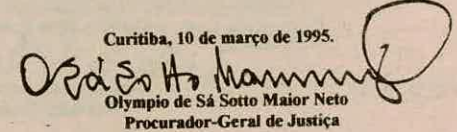 Curitiba, 10 de março de 1995.
Olympio de Sá Sotto Maior Neto
Procurador-Geral de Justiça